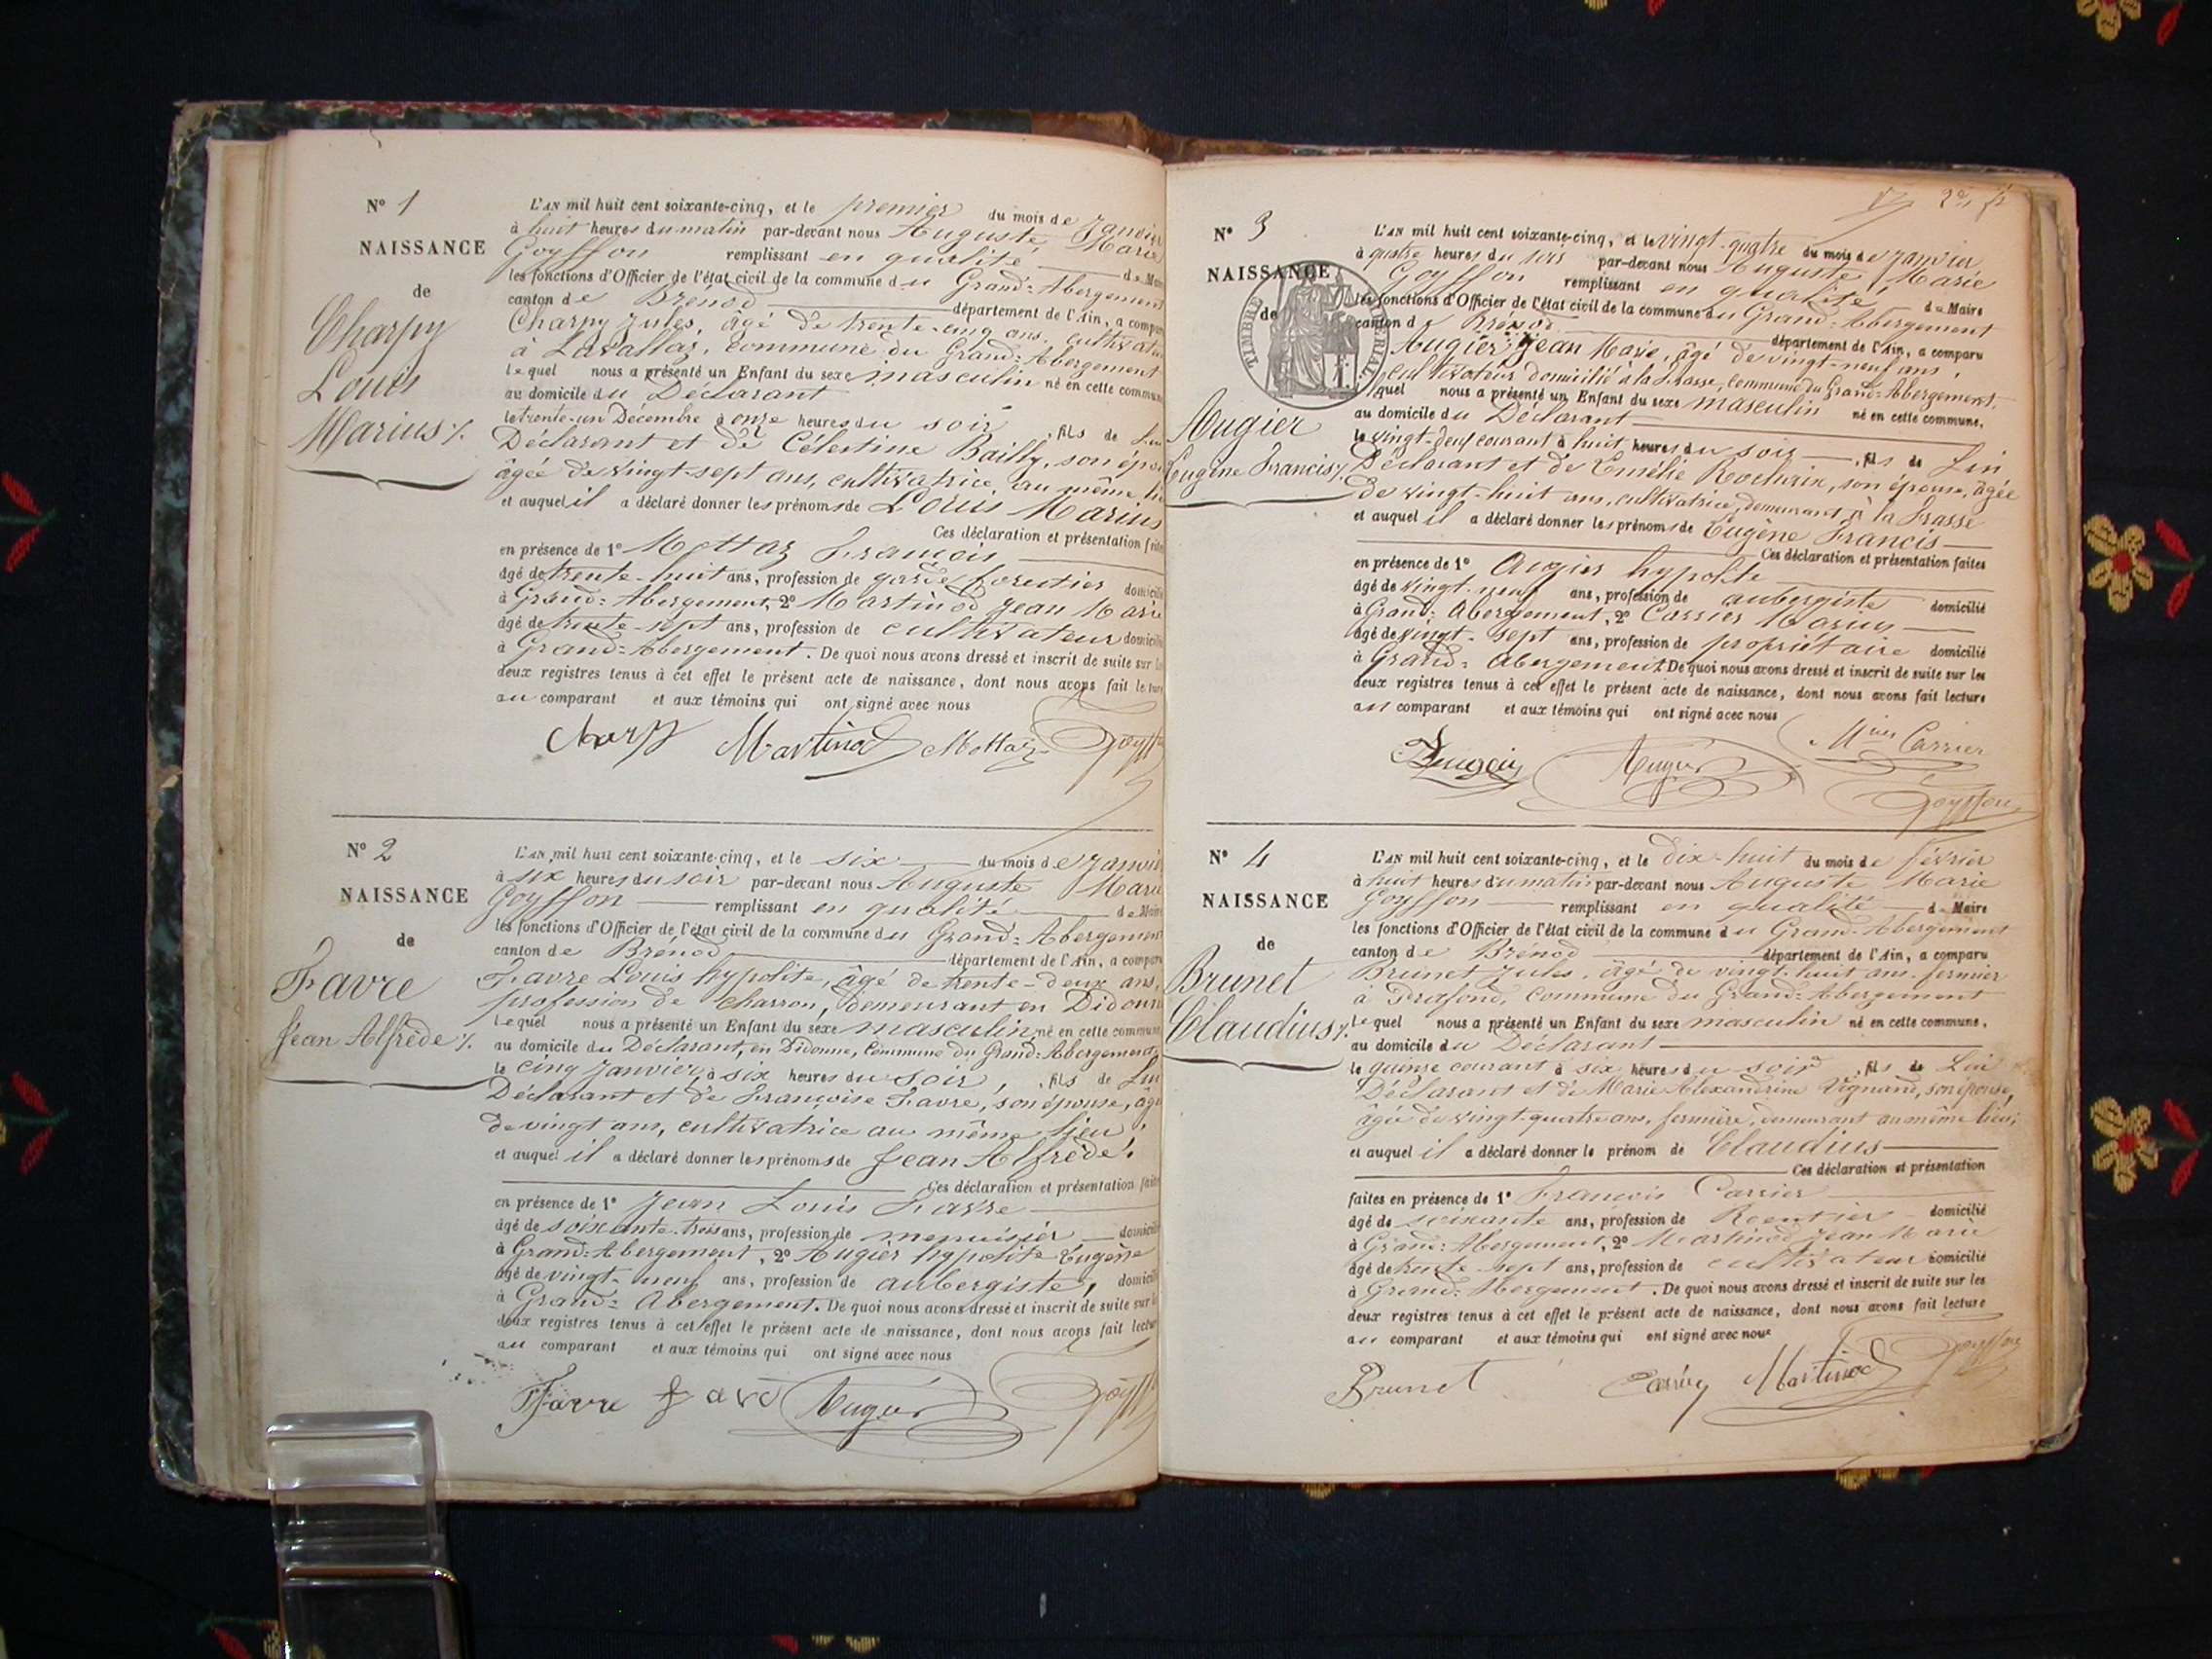 N° 1
NAISSANCE
de
Charpy
Louis
Marius
L'AN mil huit cent soixante-cinq, et le premier du mois de Janvier
à huit heures du matin par-devant nous Auguste Marie
Goyffon remplissant en qualité de Maire
les fonctions d'Officier de l'état civil de la commune du Grand-Abergement
canton de Brénod département de l'Ain, a comparu
Charpy Jules, âgé de trente-cinq ans, cultivateur
à Lavallaz, commune du Grand-Abergement
lequel nous a présenté un Enfant du sexe masculin né en cette commune
au domicile du Déclarant
le trente-un Décembre à onze heures du soir, fils de Lui
Déclarant et de Célestine Bailly, son épouse
âgée de vingt-sept ans, cultivatrice au même lieu
et auquel il a déclaré donner les prénoms de Louis Marius
Ces déclaration et présentation faites
en présence de 1° Mottaz François
âgé de trente-huit ans, profession de garde forestier domicilié
à Grand-Abergement, 2° Martinod Jean Marie
âgé de trente-sept ans, profession de cultivateur domicilié
à Grand-Abergement. De quoi nous avons dressé et inscrit de suite sur les
deux registres tenus à cet effet le présent acte de naissance, dont nous avons fait lecture
au comparant et aux témoins qui ont signé avec nous
Charpy Martinod Mottaz Goyffon
N° 2
NAISSANCE
de
Favre
Jean Alfrède
L'AN mil huit cent soixante-cinq, et le six du mois de Janvier
à six heures du soir par-devant nous Auguste Marie
Goyffon remplissant en qualité de Maire
les fonctions d'Officier de l'état civil de la commune du Grand-Abergement
canton de Brénod département de l'Ain, a comparu
Favre Louis hypolite, âgé de trente-deux ans,
profession de charron, demeurant en Didonne
lequel nous a présenté un Enfant du sexe masculin né en cette commune
au domicile du Déclarant, en Didonne, Commune du Grand-Abergement,
le cinq Janvier, à six heures du soir, fils de Lui
Déclarant et de Françoise Favre, son épouse, âgée
de vingt ans, cultivatrice au même lieu,
et auquel il a déclaré donner les prénoms de Jean Alfrède.
Ces déclaration et présentation faites
en présence de 1° Jean Louis Favre
âgé de soixante-trois ans, profession de menuisier domicilié
à Grand-Abergement, 2° Augier hypolite Eugène
âgé de vingt-neuf ans, profession de aubergiste, domicilié
à Grand-Abergement. De quoi nous avons dressé et inscrit de suite sur les
deux registres tenus à cet effet le présent acte de naissance, dont nous avons fait lecture
au comparant et aux témoins qui ont signé avec nous
Favre favre Augier Goyffon
N° 3
NAISSANCE
de
TIMBRE IMPERIAL
Augier
Eugène Francis
L'AN mil huit cent soixante-cinq, et le vingt-quatre du mois de Janvier
à quatre heures du soir par-devant nous Auguste Marie
Goyffon remplissant en qualité de Maire
les fonctions d'Officier de l'état civil de la commune du Grand-Abergement
canton de Brénod département de l'Ain, a comparu
Augier Jean Marie, âgé de vingt-neuf ans,
cultivateur domicilié à la Frasse, Commune du Grand-Abergement,
lequel nous a présenté un Enfant du sexe masculin né en cette commune,
au domicile du Déclarant
le vingt-deux courant à huit heures du soir, fils de Lui
Déclarant et de Emélie son épouse, âgée
de vingt-huit ans, cultivatrice, demeurant à la Frasse
et auquel il a déclaré donner les prénoms de Eugène Francis
Ces déclaration et présentation faites
en présence de 1° Augier hypolite
âgé de vingt-neuf ans, profession de aubergiste domicilié
à Grand-Abergement, 2° Carrier Marius
âgé de vingt-sept ans, profession de propriétaire domicilié
à Grand-Abergement. De quoi nous avons dressé et inscrit de suite sur les
deux registres tenus à cet effet le présent acte de naissance, dont nous avons fait lecture
au comparant et aux témoins qui ont signé avec nous
Mius Carrier
Augier Augier
Goyffon
N° 4
NAISSANCE
de
Brunet
Claudius
L'AN mil huit cent soixante-cinq, et le dix-huit du mois de février
à huit heures du matin par-devant nous Auguste Marie
Goyffon remplissant en qualité de Maire
les fonctions d'Officier de l'état civil de la commune du Grand-Abergement
canton de Brénod département de l'Ain, a comparu
Brunet Jules, âgé de vingt-huit ans, fermier
à Prafond, Commune du Grand-Abergement
lequel nous a présenté un Enfant du sexe masculin né en cette commune,
au domicile du Déclarant
le quinze courant à six heures du soir, fils de Lui
Déclarant et de Marie Alexandrine Vignand, son épouse,
âgée de vingt-quatre ans, fermière, demeurant au même lieu,
et auquel il a déclaré donner le prénom de Claudius
Ces déclaration et présentation
faites en présence de 1° François Carrier
âgé de soixante ans, profession de Rentier domicilié
à Grand-Abergement, 2° Martinod Jean Marie
âgé de trente-sept ans, profession de cultivateur domicilié
à Grand-Abergement. De quoi nous avons dressé et inscrit de suite sur les
deux registres tenus à cet effet le présent acte de naissance, dont nous avons fait lecture
au comparant et aux témoins qui ont signé avec nous
Brunet Carrier Martinod Goyffon